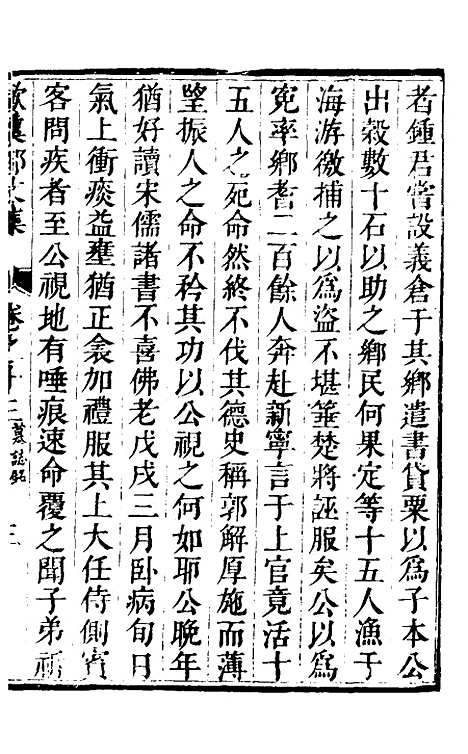 者鍾君嘗設義倉于其鄉遣書貸粟以爲子本公
出穀數十石以助之鄉民何果定等十五人漁于
海游徼捕之以爲盜不堪箠楚將誣服矣公以爲
寃率鄉耆二百餘人奔赴新寧言于上官竟活十
五人之死命然終不伐其德史稱郭解厚施而薄
望振人之命不矜其功以公視之何如耶公晚年
猶好讀宋儒諸書不喜佛老戊戌三月卧病旬日
氣上衝痰益壅猶正衾加禮服其上大任侍側賓
客問疾者至公視地有唾痕速命覆之聞子弟祈
集
墓誌銘
三